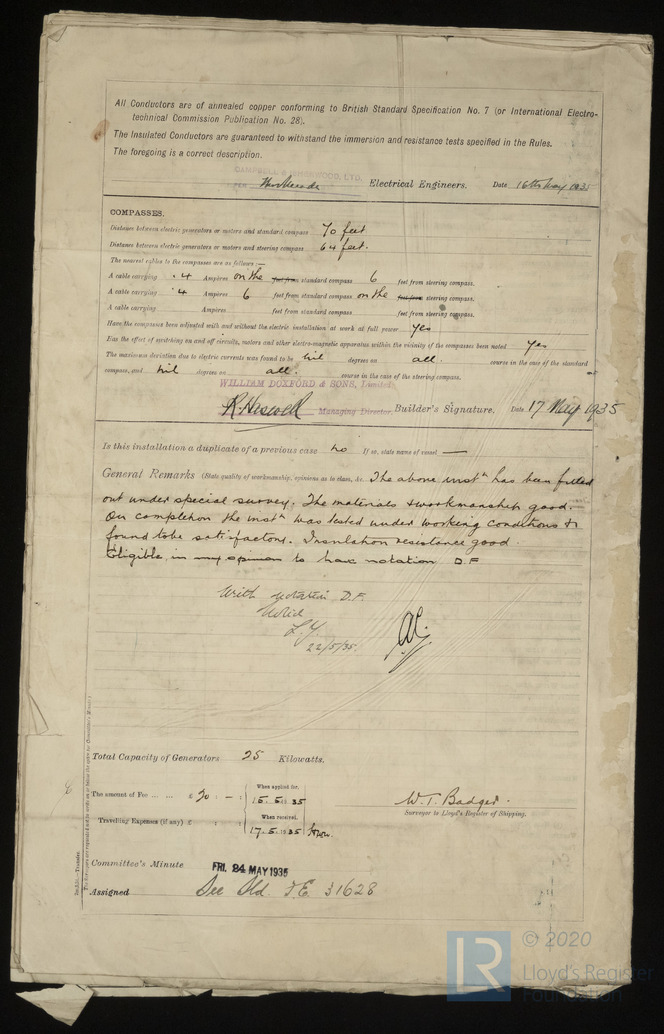 All Conductors are of annealed copper conforming to British Standard Specification No. 7 (or International Electro-
technical Commission Publication No. 28).
The Insulated Conductors are guaranteed to withstand the immersion and resistance tests specified in the Rules.
The foregoing is a correct description.
CAMPBELL & ISHERWOOD, LTD.
Electrical Engineers. Date 16th May 1935
COMPASSES.
Distance between electric generators or motors and standard compass 70 feet
Distance between electric generators or motors and steering compass 64 feet.
The nearest cables to the compasses are as follows:—
A cable carrying .4 Ampères on the feet from standard compass 6 feet from steering compass.
A cable carrying .4 Ampères 6 feet from standard compass on the feet from steering compass.
A cable carrying Ampères feet from standard compass feet from steering compass.
Have the compasses been adjusted with and without the electric installation at work at full power Yes
Has the effect of switching on and off circuits, motors and other electro-magnetic apparatus within the vicinity of the compasses been noted Yes
The maximum deviation due to electric currents was found to be Nil degrees on all. course in the case of the standard
compass, and Nil degrees on all. course in the case of the steering compass.
WILLIAM DOXFORD & SONS, Limited
Managing Director. Builder's Signature. Date 17 May 1935
Is this installation a duplicate of a previous case no If so, state name of vessel —
General Remarks (State quality of workmanship, opinions as to class, &c. The above instn has been fitted
out under special survey. The materials & workmanship good.
On completion the instn was tested under working conditions &
found to be satisfactory. Insulation resistance good.
Eligible in my opinion to have notation D.F
With notation D.F.
Noted
L.Y.
22/5/35
Total Capacity of Generators 25 Kilowatts.
The amount of Fee ... ... £ 20 : — : When applied for, 15.5.1935
Travelling Expenses (if any) £ : : When received, 17.5.1935
W. T. Badger.
Surveyor to Lloyd's Register of Shipping.
Committee's Minute FRI. 24 MAY 1935
Assigned See Sld. F.E. 31628
© 2020
LR
Lloyd's Register
Foundation